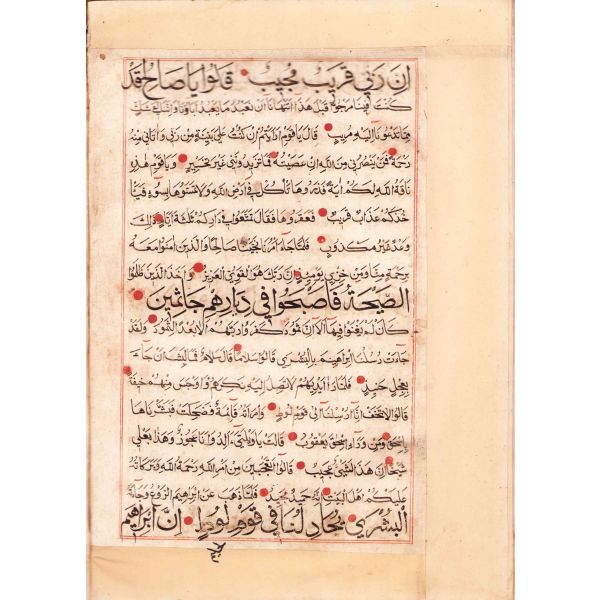 ان ربي قريب مجيب قالوا يا صالح قد
كنت فينا مرجوا قبل هذا اتنهانا ان نعبد ما يعبد اباؤنا واننا لفي شك
مما تدعونا اليه مريب قال يا قوم ارايتم ان كنت على بينة من ربي واتاني منه
رحمة فمن ينصرني من الله ان عصيته فما تزيدونني غير تخسير ويا قوم هذه
ناقة الله لكم اية فذروها تاكل في ارض الله ولا تمسوها بسوء فيا
خذكم عذاب قريب فعقروها فقال تمتعوا في داركم ثلثة ايام ذلك
وعد غير مكذوب فلما جاء امرنا نجينا صالحا والذين امنوا معه
برحمة منا ومن خزي يومئذ ان ربك هو القوي العزيز واخذ الذين ظلموا
الصيحة فاصبحوا في ديارهم جاثمين
كان لم يغنوا فيها الا ان ثمود كفروا ربهم الا بعدا لثمود ولقد
جاءت رسلنا ابراهيم بالبشرى قالوا سلاما قال سلام فما لبث ان جاء
بعجل حنيذ فلما را ايديهم لا تصل اليه نكرهم واوجس منهم خيفة
قالوا لا تخف انا ارسلنا الى قوم لوط وامراته قائمة فضحكت فبشرناها
باسحق ومن وراء اسحق يعقوب قالت يا ويلتى االد وانا عجوز وهذا بعلي
شيخا ان هذا لشيء عجيب قالوا اتعجبين من امر الله رحمة الله وبركاته
عليكم اهل البيت انه حميد مجيد فلما ذهب عن ابراهيم الروع وجاءته
البشرى يجادلنا في قوم لوط ان ابراهيم